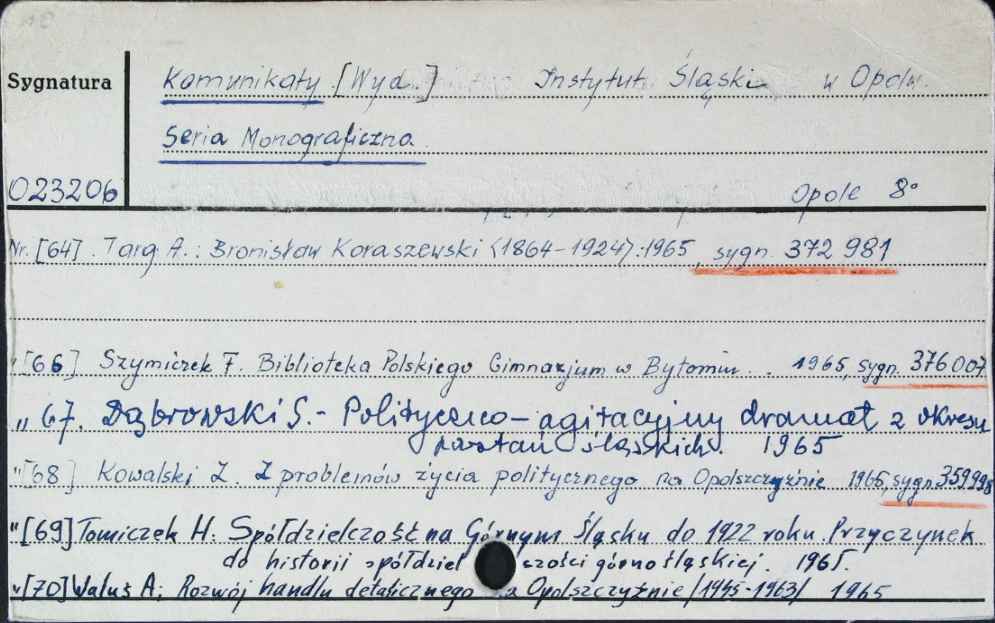 Sygnatura Komunikaty [Wyd.] Instytut Śląski w Opolu.
Seria Monograficzna
023206 Opole 8°
Nr. [64]. Targ A.: Bronisław Koraszewski <1864-1924>. 1965, sygn. 372 981
" [66] Szymiczek F. Biblioteka Polskiego Gimnazjum w Bytomiu.. 1965, sygn. 376007
" 67. Dąbrowski S. - Polityczno - agitacyjny dramat z okresu
powstań śląskich. 1965
" [68] Kowalski Z. Z problemów życia politycznego na Opolszczyźnie 1965, sygn. 359998
" [69] Tomiczek H: Spółdzielczość na Górnym Śląsku do 1922 roku. Przyczynek
do historii spółdziel czości górnośląskiej. 1965.
" [70] Waluś A; Rozwój handlu detalicznego a Opolszczyźnie /1945-1963/ 1965